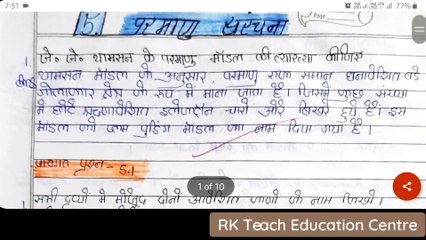 7:51
77%
5. परमाणु संरचना
1. जे० जे० थामसन के परमाणु मॉडल की व्याख्या कीजिए
थामसन मॉडल के अनुसार, परमाणु एक समान धनावेशित बड़े
गोलाकार क्षेत्र के रूप में माना जाता है। जिसमें कुछ संख्या
में छोटे ऋणावेशित इलेक्ट्रॉन चारो ओर बिखरे हुये हैं। इस
मॉडल को प्लम पुडिंग मॉडल का नाम दिया गया है।
5.1
1 of 10
सभी द्रव्यों में मौजूद दोनों आवेशित कणों के नाम लिखो।
RK Teach Education Centre